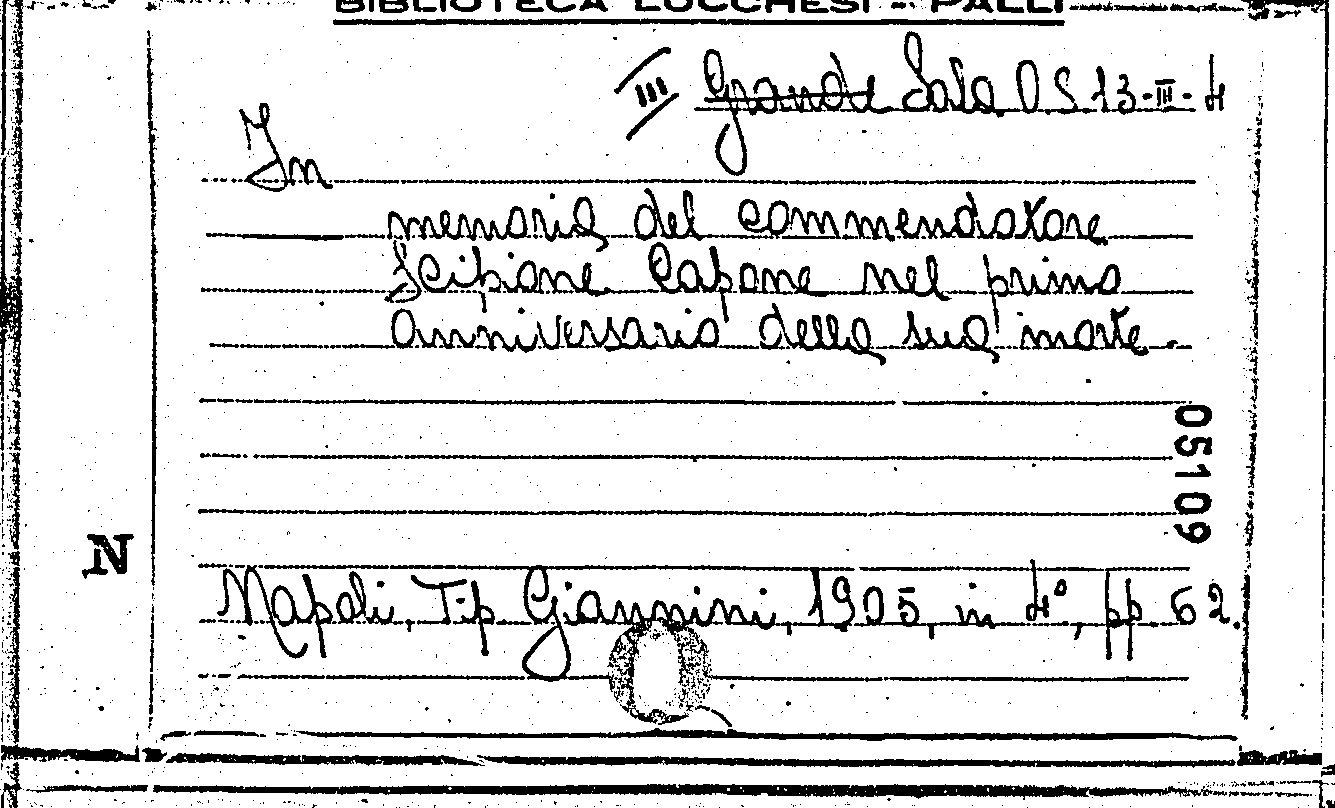 BIBLIOTECA LUCCHESI - PALLI
III Grande Sala O.S. 13-III-4
In
memoria del commendatore
Scipione Capone nel primo
anniversario della sua morte.
05109
N
Napoli, Tip. Giannini, 1905, in 4°, pp. 62.